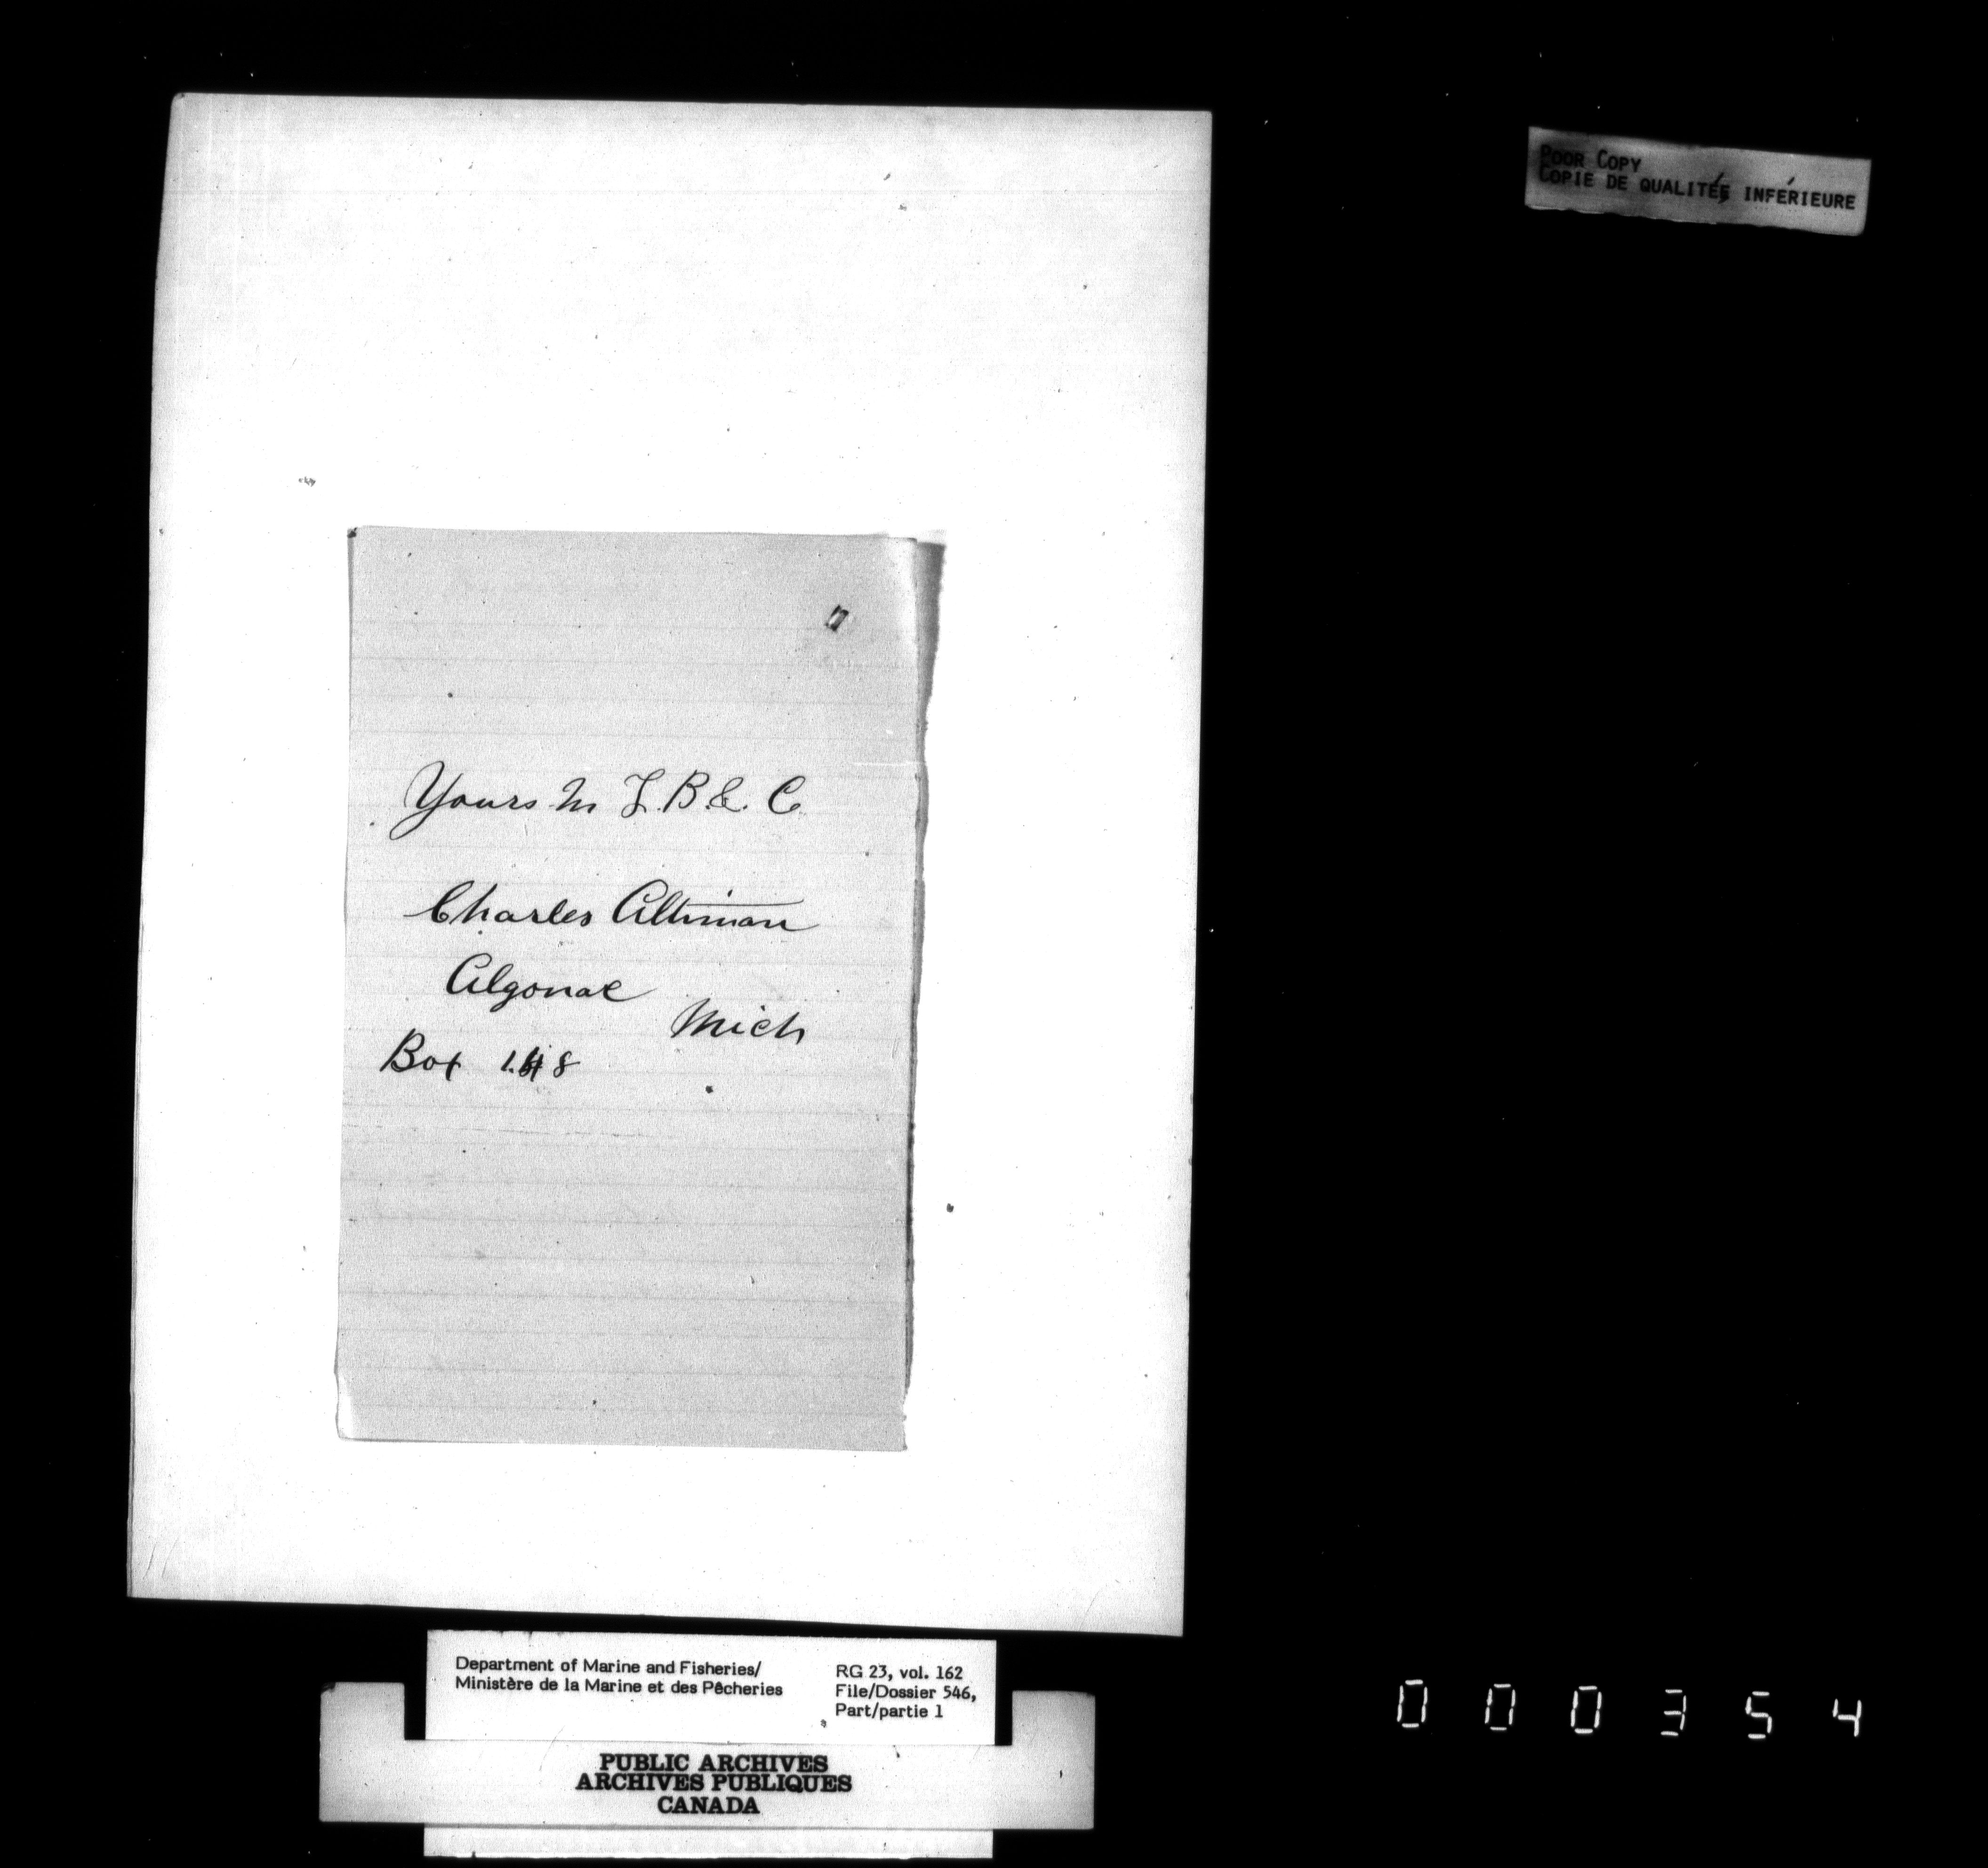 POOR COPY
COPIE DE QUALITÉE INFÉRIEURE
Yours In L. B. & C.
Charles Altiman
Algonac
Mich
Box 148
Department of Marine and Fisheries/
Ministère de la Marine et des Pêcheries
RG 23, vol. 162
File/Dossier 546,
Part/partie 1
PUBLIC ARCHIVES
ARCHIVES PUBLIQUES
CANADA
000354